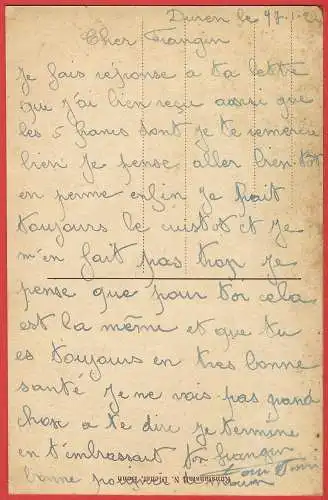 Duren le
Cher frangin
Je fais réponse a ta lettre
que j'ai bien reçu aussi que
les 5 francs dont je te remercie
bien je pense aller bien tot
en perme enfin je fait
toujours le cuistot et je
m'en fait pas trop je
pense que pour toi cela
est la même et que tu
es toujours en tres bonne
santé je ne vais pas grand
chose a te dire je termine
en t'embrassant
frangin
bonne